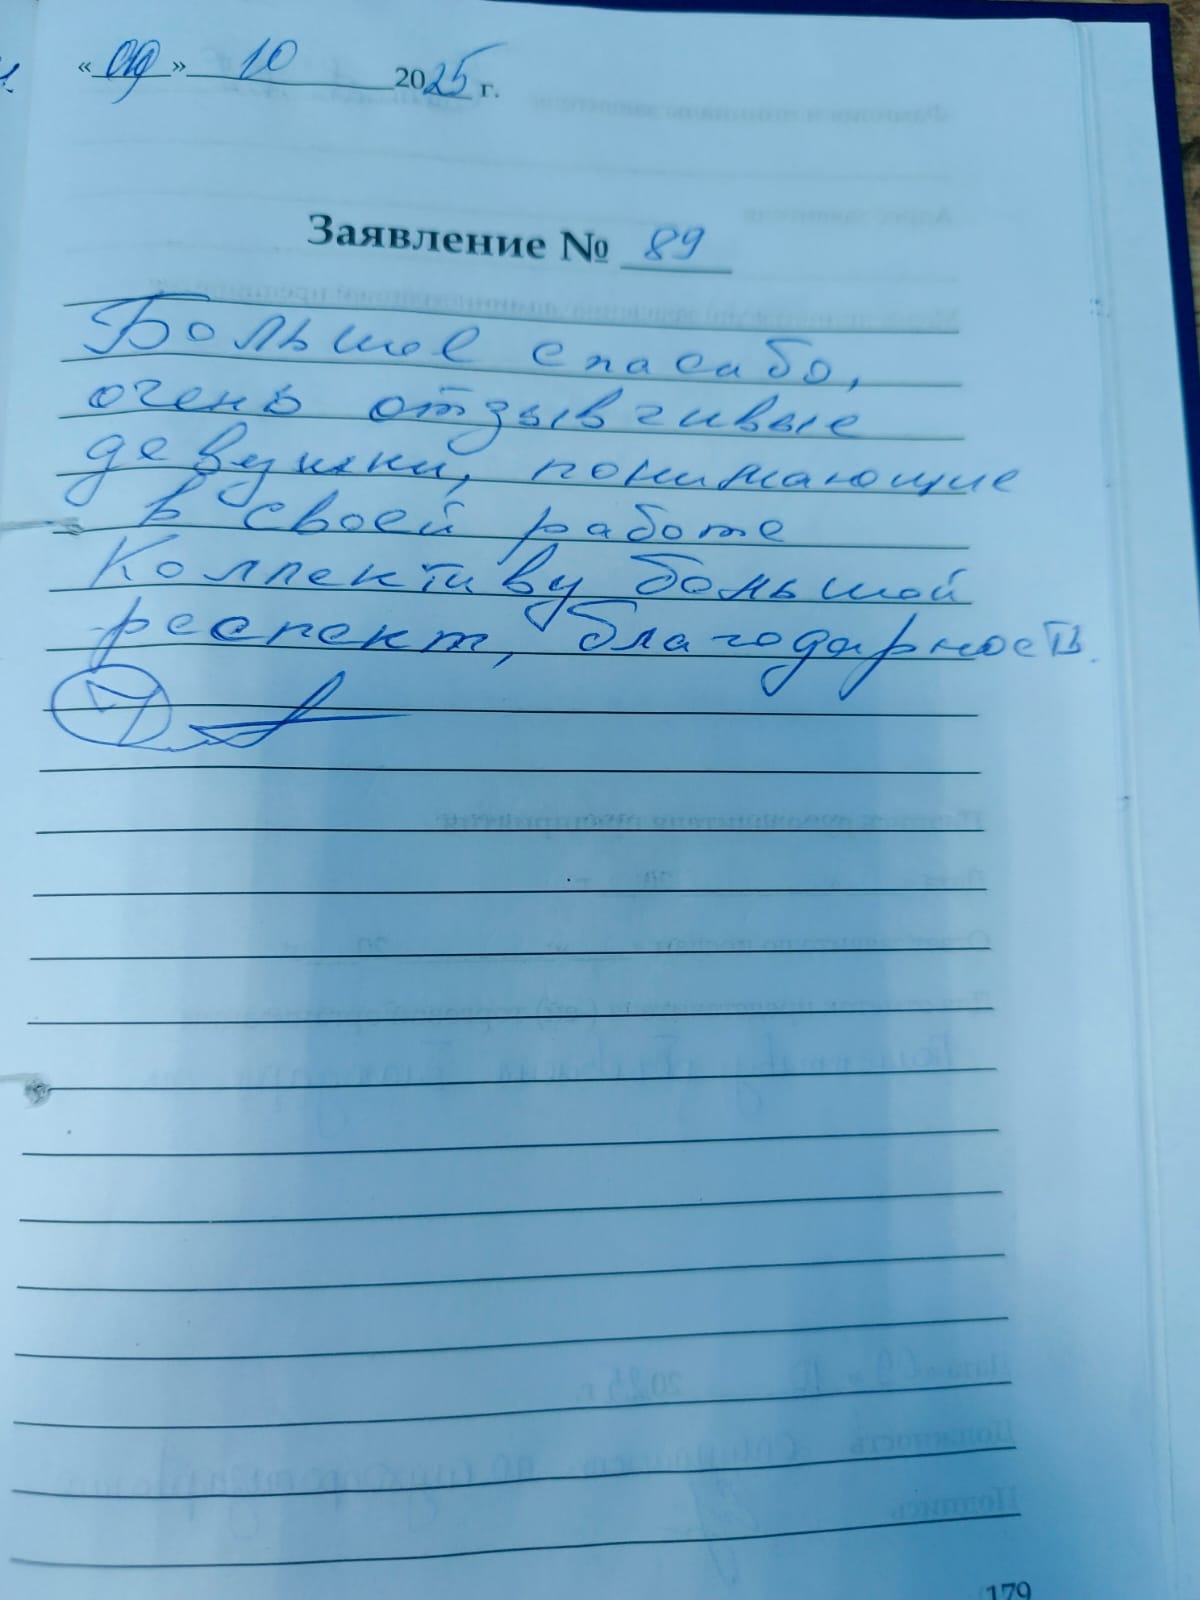 «09» 10 2025 г.
Заявление № 89
Большое спасибо,
очень отзывчивые
девушки, понимающие
в своей работе
Коллективу большой
респект, благодарность.
179